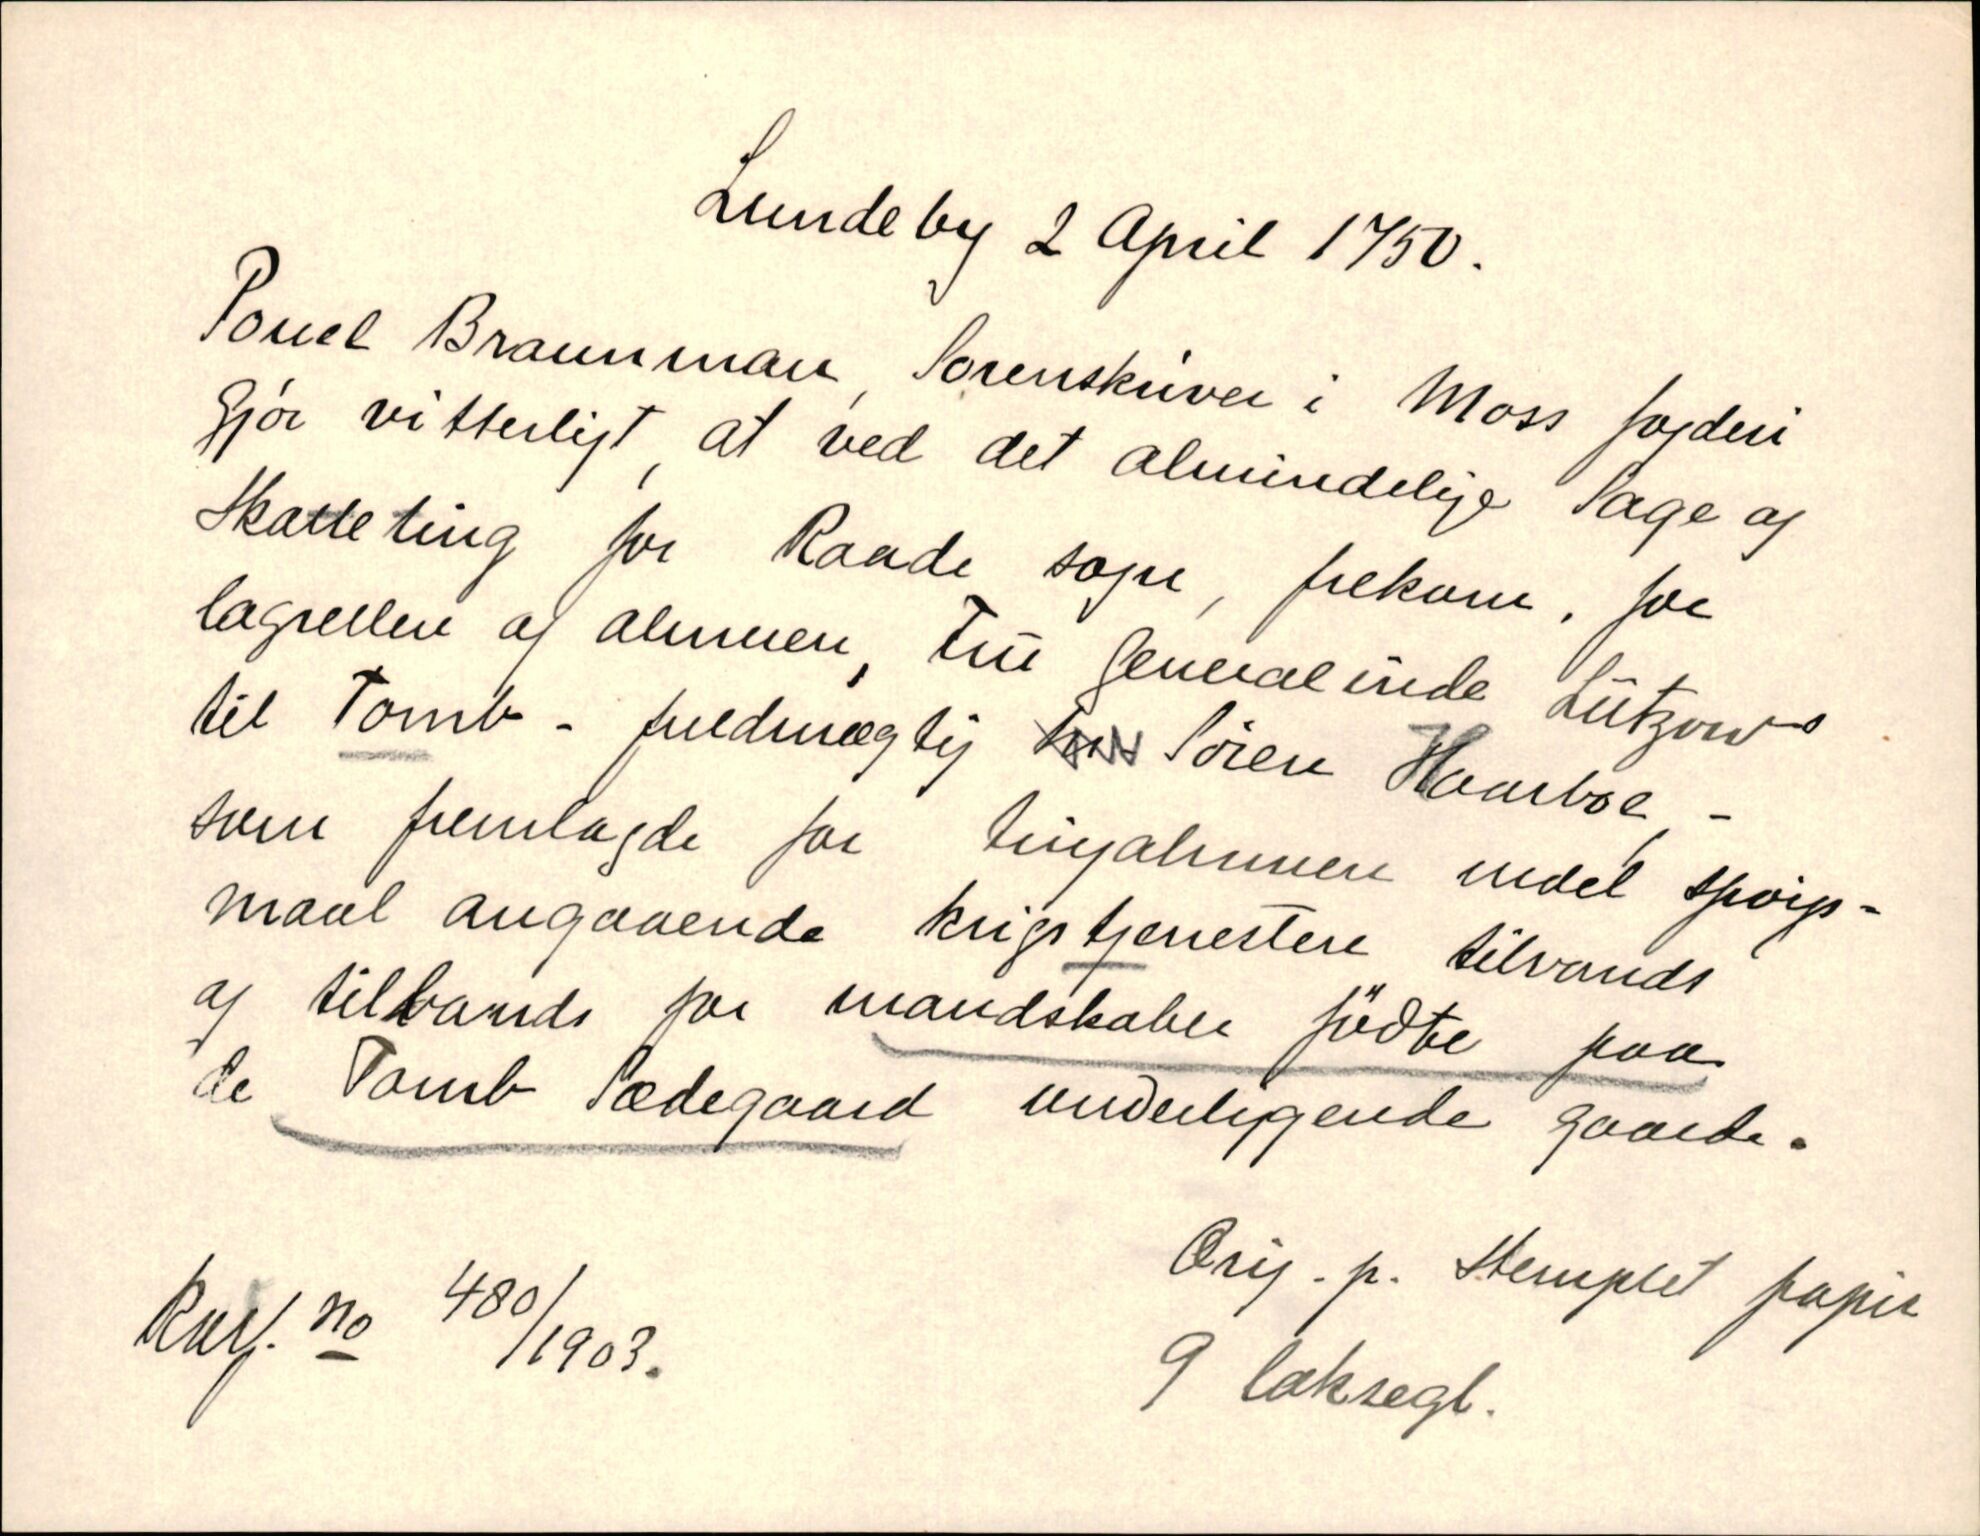 Lundeby 2 April 1750.
Pouel Braunman, Sorenskriver i Moss fogderi
gjør vitterligt, at ved det almindelige Sage og
Skatteting for Raade sogn, frekom, for
lagretten og almuen, Fru Generalinde Lützows
til Tomb - fuldmægtig Søren Haarboe, -
som fremlagde for tingalmuen endel spørgs-
maal angaaende krigstjenesten tilvands
og tillands for mandskaber födte paa
de Tomb Sædegaard underliggende gaarde.
Orig. p. stemplet papir
9 laksegl.
No 480/1903.